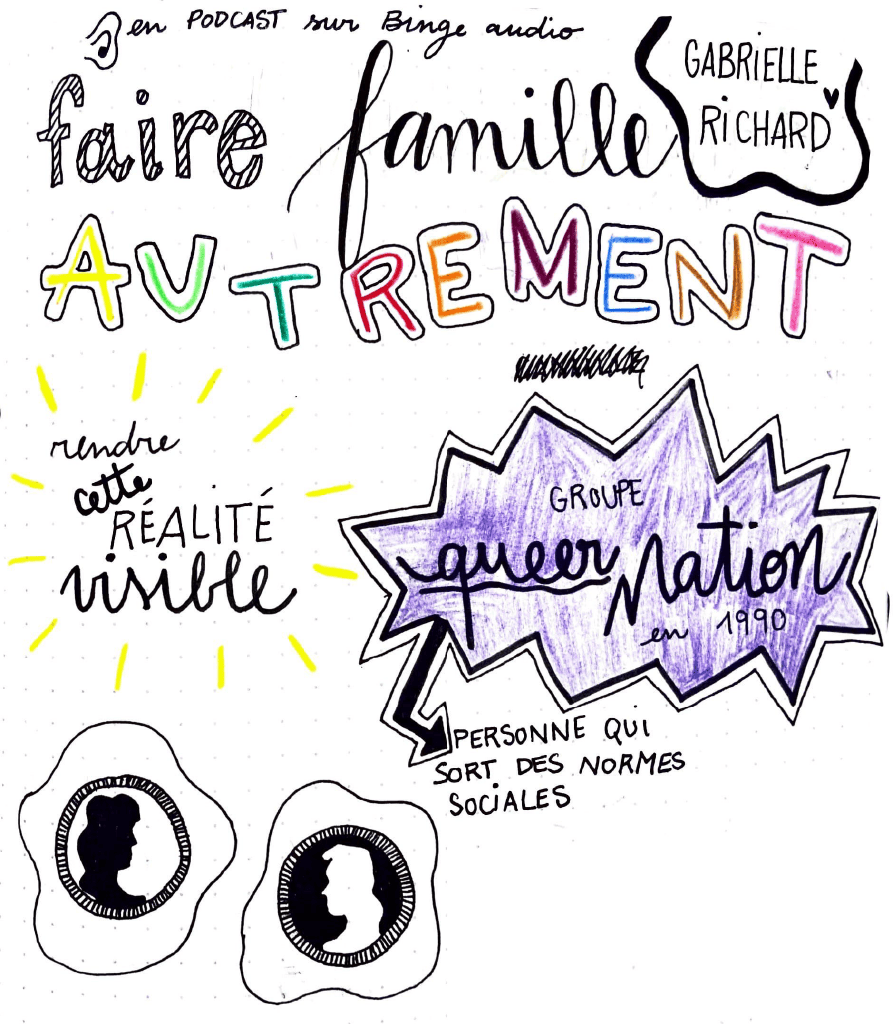 en PODCAST sur Binge audio
faire famille
GABRIELLE
RICHARD
AUTREMENT
rendre
cette
RÉALITÉ
visible
GROUPE
queer Nation
en 1990
PERSONNE QUI
SORT DES NORMES
SOCIALES